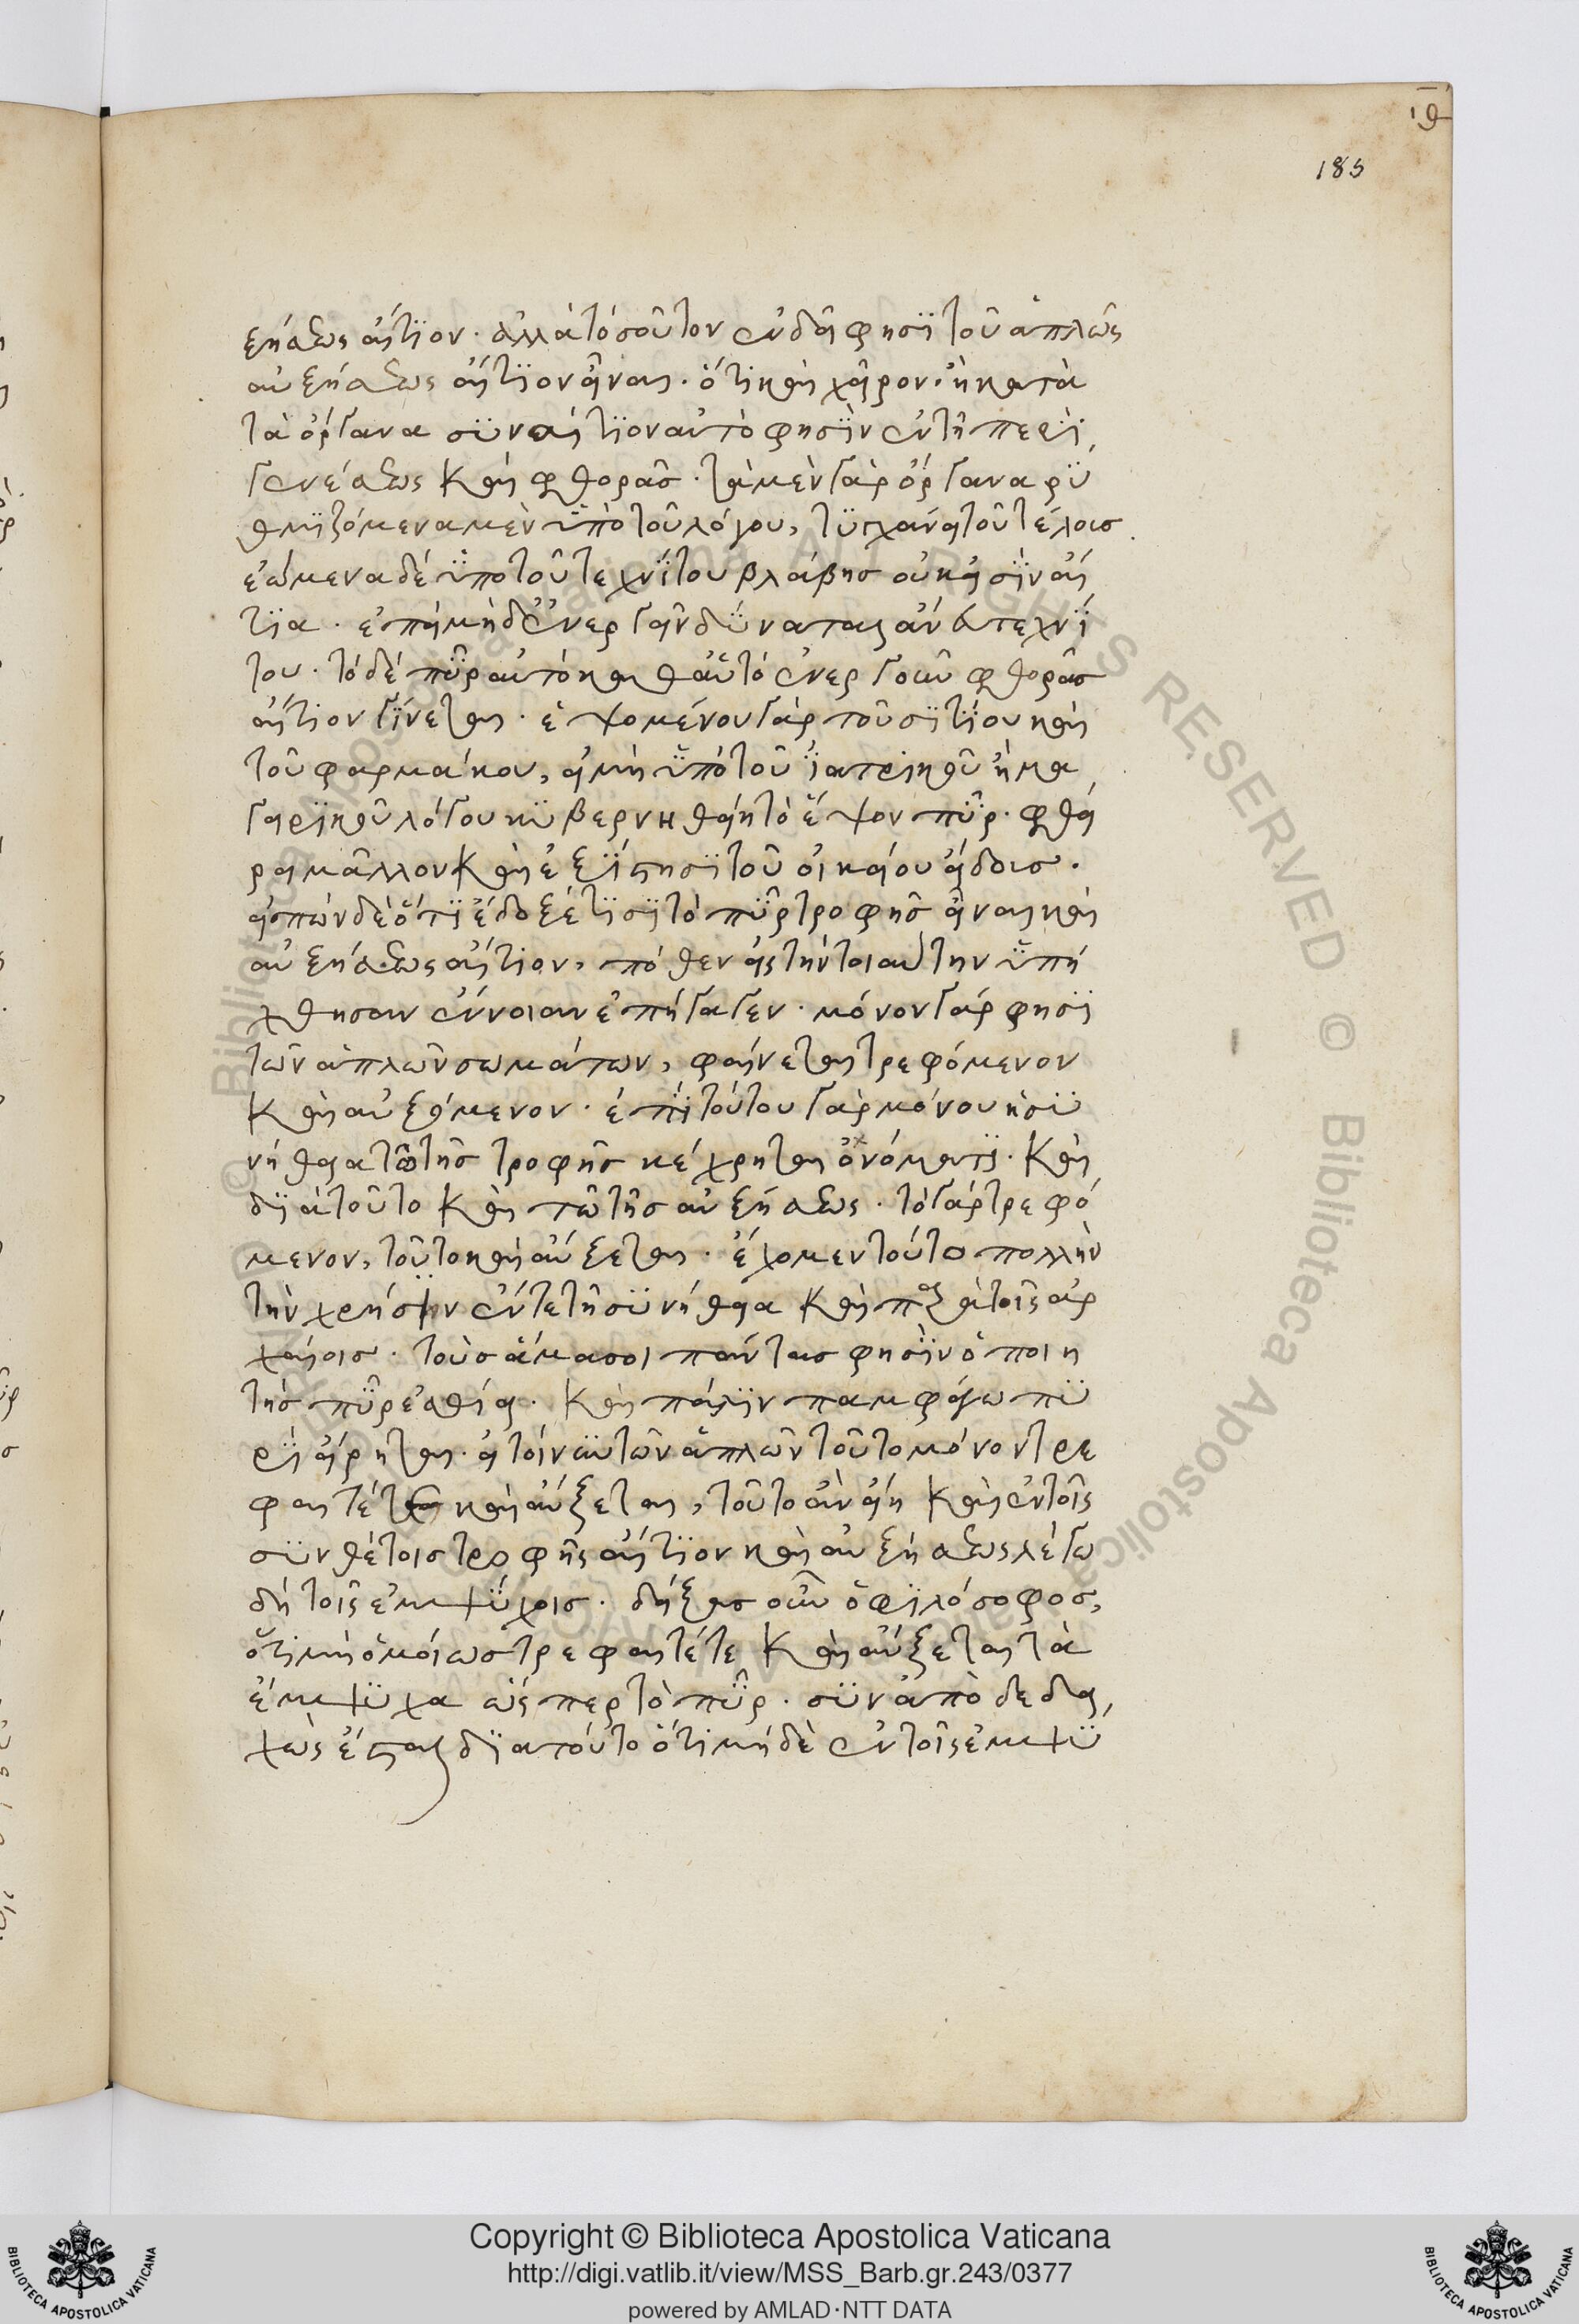 ιθ
185
ξήσεως αἴτϊον· ἀλλὰ τόσοῦτον ἐνδεῖ φησϊ τοῦ ἁπλῶς
αὐξήσεως αἴτϊον εἶναι· ὅτι καὶ χεῖρον ἢ κατὰ
τὰ ὄργανα σϋναίτϊον αὐτὸ φησϊν ἐν τῆ περὶ
γενέσεως καὶ φθορᾶσ· τὰ μὲν γὰρ ὄργανα ρϋ
θμϊζόμενα μὲν ϋπὸ τοῦ λόγου, τϋγχάνει τοῦ τέλουσ
ἐώμενα δέ ϋπο τοῦ τεχνϊτου βλάβησ οὐκ εἰσϊν αἴ
τϊα· ἐπεὶ μὴδ ἐνεργεῖν δϋναται ἄνευ τεχνϊ
του· τό δέ πῦρ αὐτό καθ αὑτό ἐνεργοῦν φθορᾶσ
αἴτιον γϊνεται· ἑψομένου γάρ τοῦ σϊτϊου καὶ
τοῦ φαρμάκου, εἰ μὴ ϋπό τοῦ ϊατρικοῦ ἢ μα
γειρικοῦ λόγου κϋβερνηθείη τὸ ἕψον πῦρ· φθεί
ρει μᾶλλον καὶ ἐξϊστησϊ τοῦ οἰκείου εἴδουσ·
εἰπών δὲ ὅτϊ ἔδοξέ τϊσϊ τὸ πῦρ τροφῆσ εἶναι καὶ
αὐξήσεως αἴτιον, πόθεν εἰς τήν τοιαύτην ϋπή
χθησαν ἔννοιαν ἐπήγαγεν· μόνον γάρ φησϊ
τῶν ἁπλῶν σωμάτων, φαίνεται τρεφόμενον
καὶ αὐξόμενον· ἐπϊ τούτου γὰρ μόνου ἡ σϋ
νήθεια τῶ τῆσ τροφῆσ κέχρηται ὀνόματϊ· καὶ
δϊὰ τοῦτο καὶ τῶ τῆσ αὐξήσεως· τό γάρ τρεφό
μενον, τοῦτο καὶ αὔξεται· ἔχομεν τούτο πολλὴν
τὴν χρήσϊν ἔν τε τῆ σϋνήθεια καὶ παρὰ τοῖς ἀρ
χαίοισ· τοὺσ ἅμα σοι παντασ φησϊν ὁ ποιη
τὴσ πῦρ ἐσθίει· καὶ πάλϊν παμφάγω πϋ
ρϊ εἴρηται· εἰ τοίνϋν τῶν ἁπλῶν τοῦτο μόνον τρε
φεταί τε καὶ αὔξεται, τοῦτο ἂν εἴη καὶ ἐν τοῖς
σϋνθέτοισ τροφῆς αἴτϊον καὶ αὐξήσεως λέγω
δή τοῖς ἐμψϋχοισ· δείξασ οὖν ὁ φϊλόσοφοσ,
ὅτι μὴ ὁμοίωσ τρεφεται τέ τε καὶ αὔξεται τὰ
ἔμψϋχα ὥςπερ τὸ πῦρ· σϋναποδεδει
χὼς ἔσται δϊα τούτο ὅτι μήδὲ ἐν τοῖς ἐμψϋ
Copyright © Biblioteca Apostolica Vaticana
http://digi.vatlib.it/view/MSS_Barb.gr.243/0377
powered by AMLAD·NTT DATA